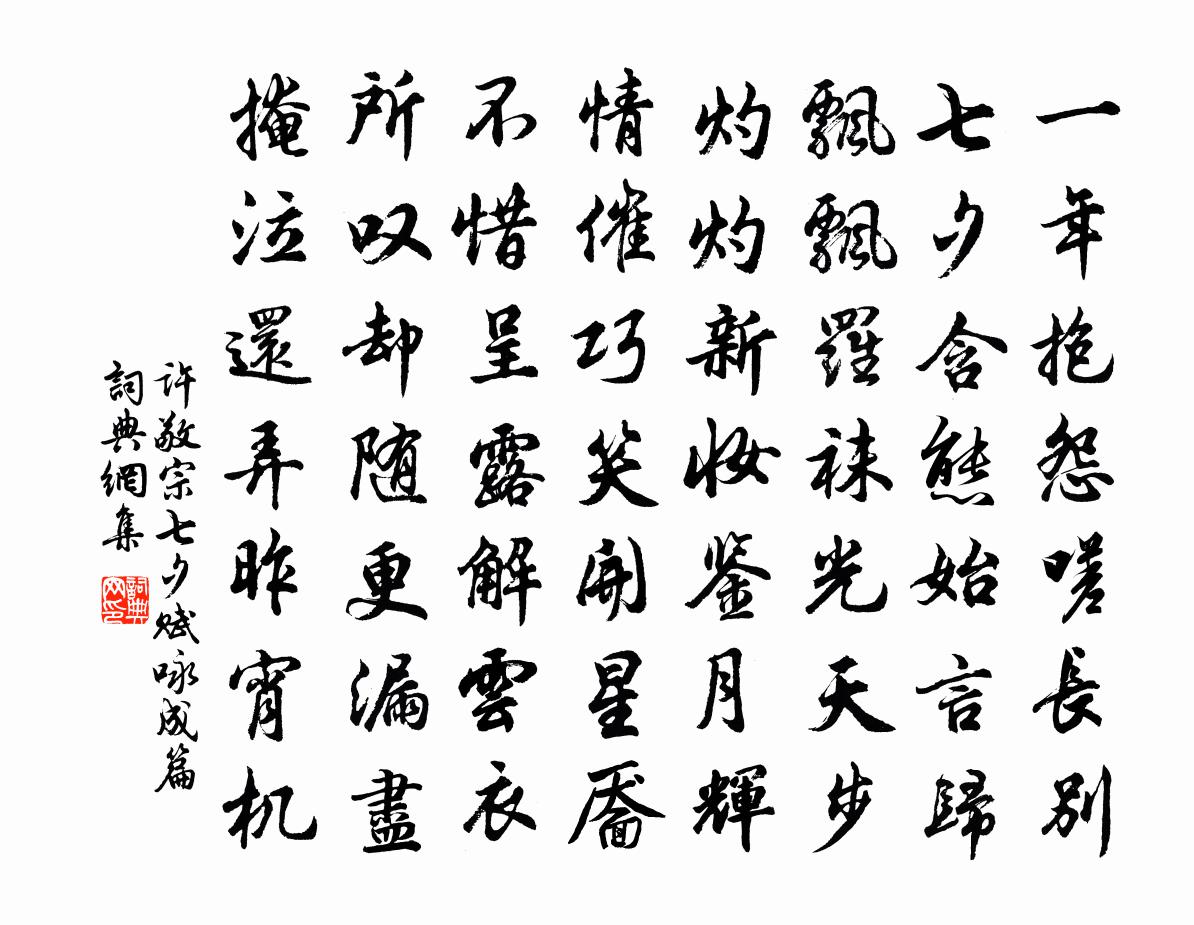 一年抱怨嗟長別
七夕含態始言歸
飄飄羅袜光天步
灼灼新妝鉴月輝
情催巧笑開星靨
不惜呈露解雲衣
所叹却随更漏盡
掩泣還弄昨宵机
许敬宗七夕赋咏成篇
詞典網集
詞典网印